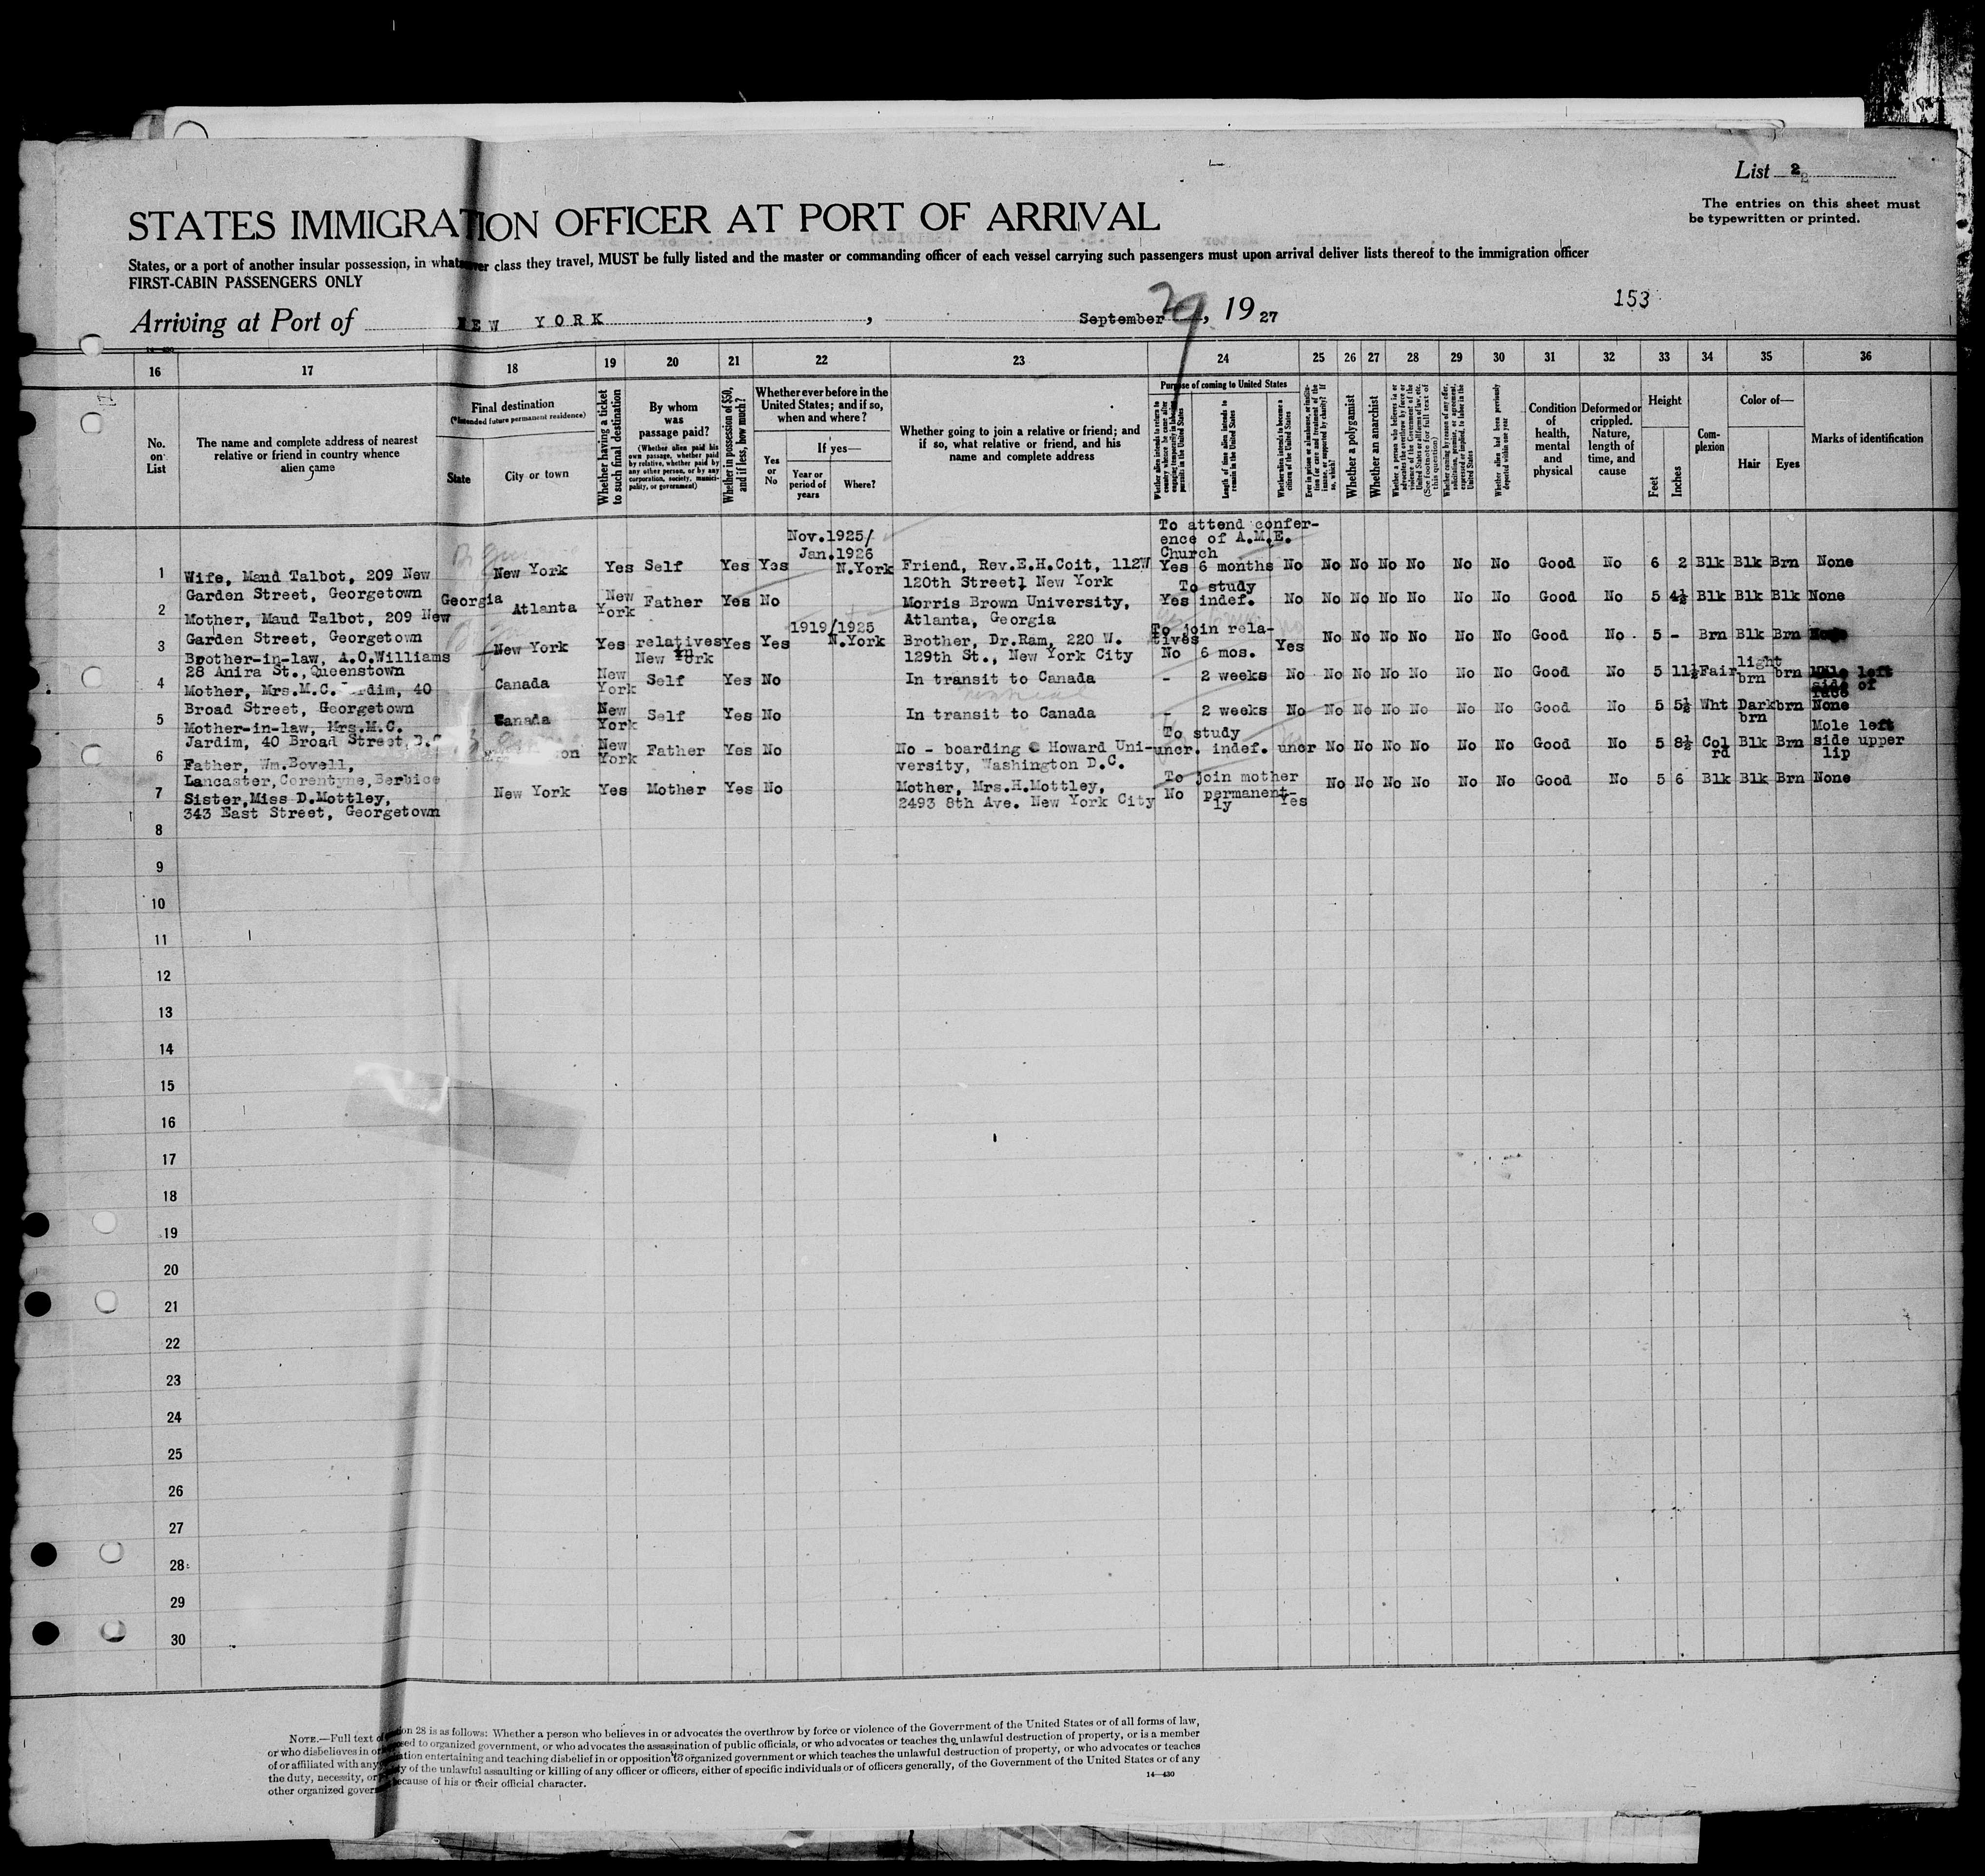 List 2
The entries on this sheet must
be typewritten or printed.
STATES IMMIGRATION OFFICER AT PORT OF ARRIVAL
States, or a port of another insular possession, in whatsoever class they travel, MUST be fully listed and the master or commanding officer of each vessel carrying such passengers must upon arrival deliver lists thereof to the immigration officer
FIRST-CABIN PASSENGERS ONLY
Arriving at Port of NEW YORK, September 29, 1927
153
16 17 18 19 20 21 22 23 24 25 26 27 28 29 30 31 32 33 34 35 36
No. on List
The name and complete address of nearest
relative or friend in country whence
alien came
Final destination
(*Intended future permanent residence)
State
City or town
Whether having a ticket
to such final destination
By whom
was
passage paid?
(Whether alien paid his
own passage, whether paid
by relative, whether paid by
any other person, or by any
corporation, society, munici-
pality, or government)
Whether in possession of $50,
and if less, how much?
Whether ever before in the
United States; and if so,
when and where?
Yes
or
No
If yes—
Year or
period of
years
Where?
Whether going to join a relative or friend; and
if so, what relative or friend, and his
name and complete address
Purpose of coming to United States
Whether alien intends to return to
country whence he came after
engaging temporarily in laboring
pursuits in the United States
Length of time alien intends to
remain in the United States
Whether alien intends to become a
citizen of the United States
Ever in prison or almshouse, or institu-
tion for care and treatment of the
insane, or supported by charity? If
so, which?
Whether a polygamist
Whether an anarchist
Whether a person who believes in or
advocates the overthrow by force or
violence of the Government of the
United States or all forms of law, etc.
(See footnote for full text of
this question)
Whether coming by reason of any offer,
solicitation, promise, or agreement,
expressed or implied, to labor in the
United States
Whether alien had been previously
deported within one year
Condition
of
health,
mental
and
physical
Deformed or
crippled.
Nature,
length of
time, and
cause
Height
Feet
Inches
Com-
plexion
Color of—
Hair
Eyes
Marks of identification
Nov.1925/
Jan.1926
To attend confer-
ence of A.M.E.
Church
1 Wife, Maud Talbot, 209 New New York Yes Self Yes Yes N.York Friend, Rev.E.H.Coit, 112W Yes 6 months No No No No No No No Good No 6 2 Blk Blk Brn None
Garden Street, Georgetown 120th Street, New York
To study
2 Mother, Maud Talbot, 209 New Georgia Atlanta New York Father Yes No Morris Brown University, Yes indef. No No No No No No No Good No 5 4½ Blk Blk Blk None
Garden Street, Georgetown Atlanta, Georgia
1919/1925
To join rela-
tives
3 Brother-in-law, A.O.Williams New York Yes relatives in New York Yes Yes N.York Brother, Dr.Ram, 220 W. No 6 mos. Yes No No No No No No Good No 5 - Brn Blk Brn
28 Anira St., Queenstown 129th St., New York City
4 Mother, Mrs.M.C. Jardim, 40 Canada New York Self Yes No In transit to Canada - 2 weeks No No No No No No No Good No 5 11½ Fair light brn brn Mole left side of face
Broad Street, Georgetown
5 Mother-in-law, Mrs.M.C. Canada New York Self Yes No In transit to Canada - 2 weeks No No No No No No No Good No 5 5½ Wht Dark brn brn None
Jardim, 40 Broad Street,
To study
6 Father, Wm.Bovell, New York Father Yes No No - boarding @ Howard Uni- uncr. indef. uncr No No No No No No Good No 5 8½ Col rd Blk Brn Mole left side upper lip
Lancaster, Corentyne, Berbice versity, Washington D.C.
To join mother
7 Sister, Miss D.Mottley, New York Yes Mother Yes No Mother, Mrs.H.Mottley, No permanent- ly Yes No No No No No No Good No 5 6 Blk Blk Brn None
343 East Street, Georgetown 2493 8th Ave. New York City
8
9
10
11
12
13
14
15
16
17
18
19
20
21
22
23
24
25
26
27
28
29
30
NOTE.—Full text of question 28 is as follows: Whether a person who believes in or advocates the overthrow by force or violence of the Government of the United States or of all forms of law,
or who disbelieves in or opposed to organized government, or who advocates the assassination of public officials, or who advocates or teaches the unlawful destruction of property, or is a member
of or affiliated with any organization entertaining and teaching disbelief in or opposition to organized government or which teaches the unlawful destruction of property, or who advocates or teaches
the duty, necessity, or propriety of the unlawful assaulting or killing of any officer or officers, either of specific individuals or of officers generally, of the Government of the United States or of any
other organized government because of his or their official character.
14—430